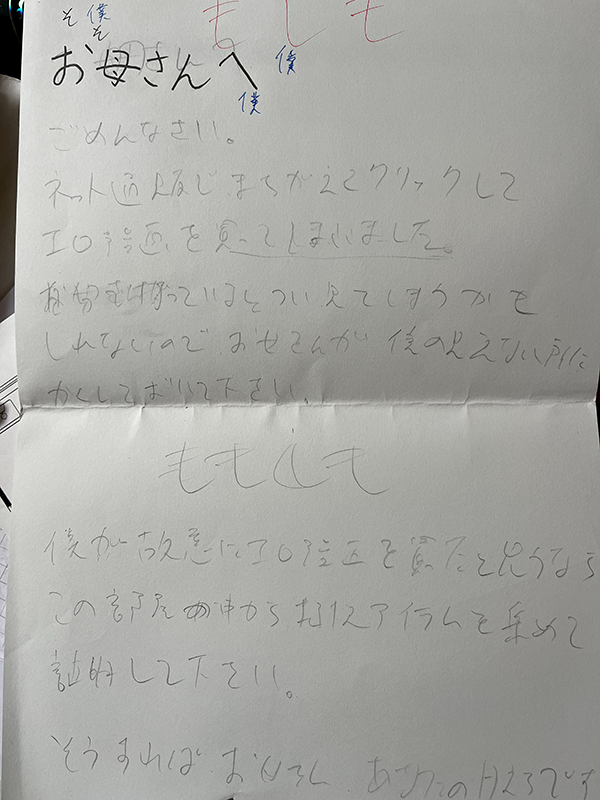 もしも
そ 僕
そ
お母さんへ
僕
僕
ごめんなさい。
ネット通販でまちがえてクリックして
エロ漫画を買ってしまいました。
っているとつい見てしまうかも
しれないので お母さんが 僕の見えない所に
かくしておいて下さい。
もしも
僕が故意にエロ漫画を買たと思うなら
この部屋の中から アイテムを集めて
証明して下さい。
そうすれば お母さん あなたの勝ちです